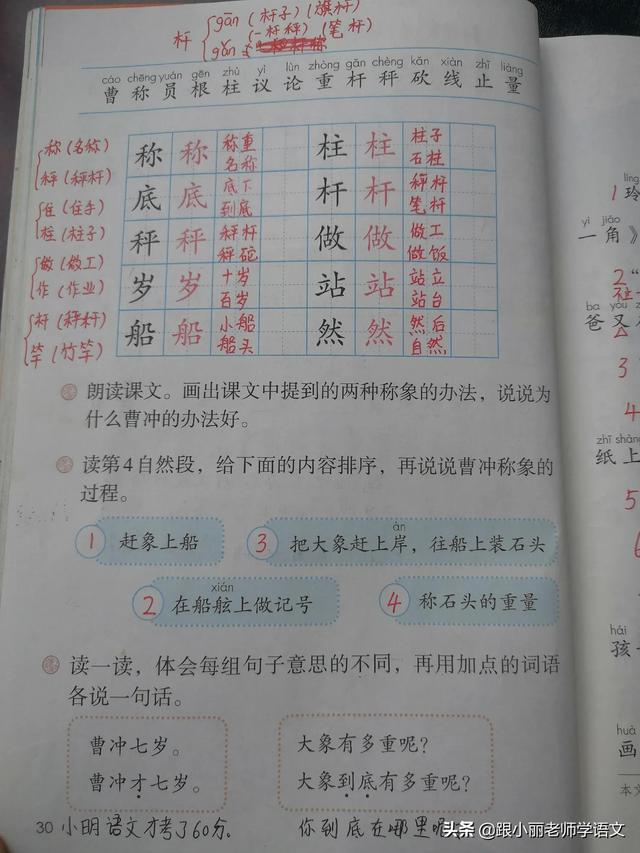 杆 gān（杆子）（旗杆）
gǎn（一杆秤）（笔杆）
cáo chēng yuán gēn zhù yì lùn zhòng gǎn chèng kǎn xiàn zhǐ liàng
曹 称 员 根 柱 议 论 重 杆 秤 砍 线 止 量
称（名称）
秤（秤杆）
住（住手）
柱（柱子）
做（做工）
作（作业）
杆（秤杆）
竿（竹竿）
称 称 称重 名称 柱 柱 柱子 石柱
底 底 底下 到底 杆 杆 秤杆 笔杆
秤 秤 秤杆 秤砣 做 做 做工 做饭
岁 岁 十岁 百岁 站 站 站立 站台
船 船 小船 船头 然 然 然后 自然
朗读课文。画出课文中提到的两种称象的办法，说说为
什么曹冲的办法好。
读第4自然段，给下面的内容排序，再说说曹冲称象的
过程。
àn
1 赶象上船 3 把大象赶上岸，往船上装石头
xián
2 在船舷上做记号 4 称石头的重量
读一读，体会每组句子意思的不同，再用加点的词语
各说一句话。
曹冲七岁。 大象有多重呢？
曹冲才七岁。 大象到底有多重呢？
30 小明语文才考了60分。 你到底在哪里呢
头条 @跟小丽老师学语文
líng
1 玲
yì jiǎo
一角》
2“
ba yòu
爸 又
3
4
zhǐ shàng
纸 上
5
6
hái
孩
huà
画